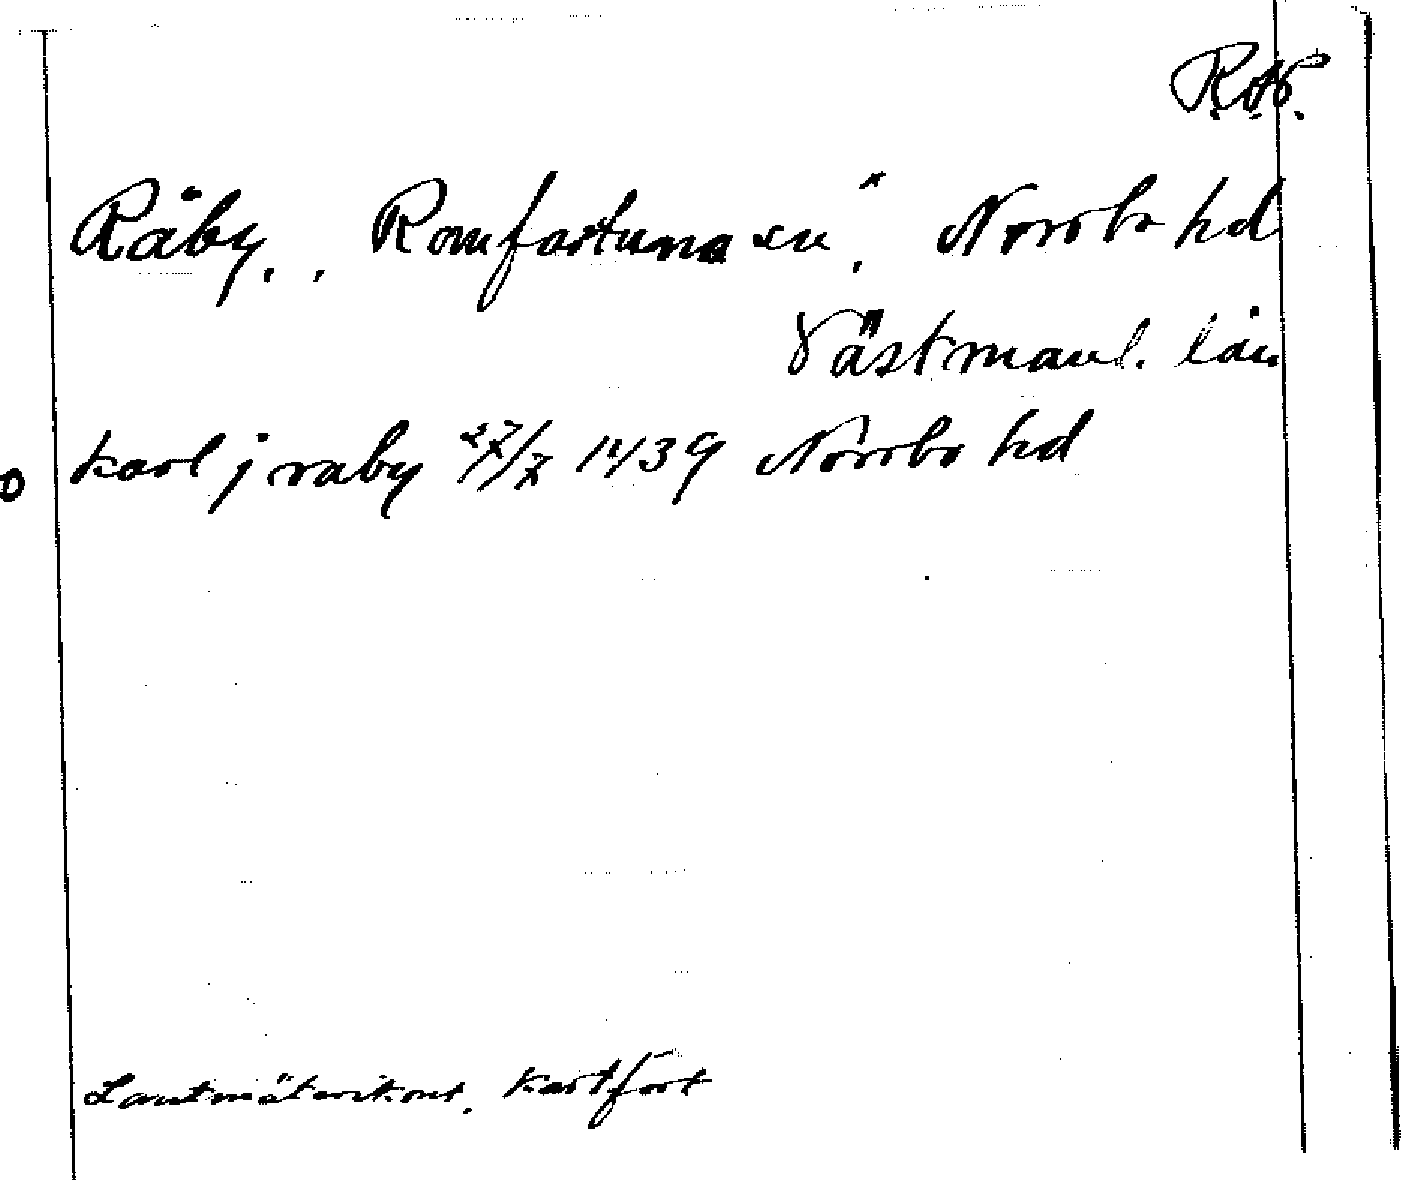 Råby, , Romfartuna sn, Norrbo hd
Västmanl. län
o karl j raby 27/7 1439 Norrbo hd
Lantmäterikont. Kartfört